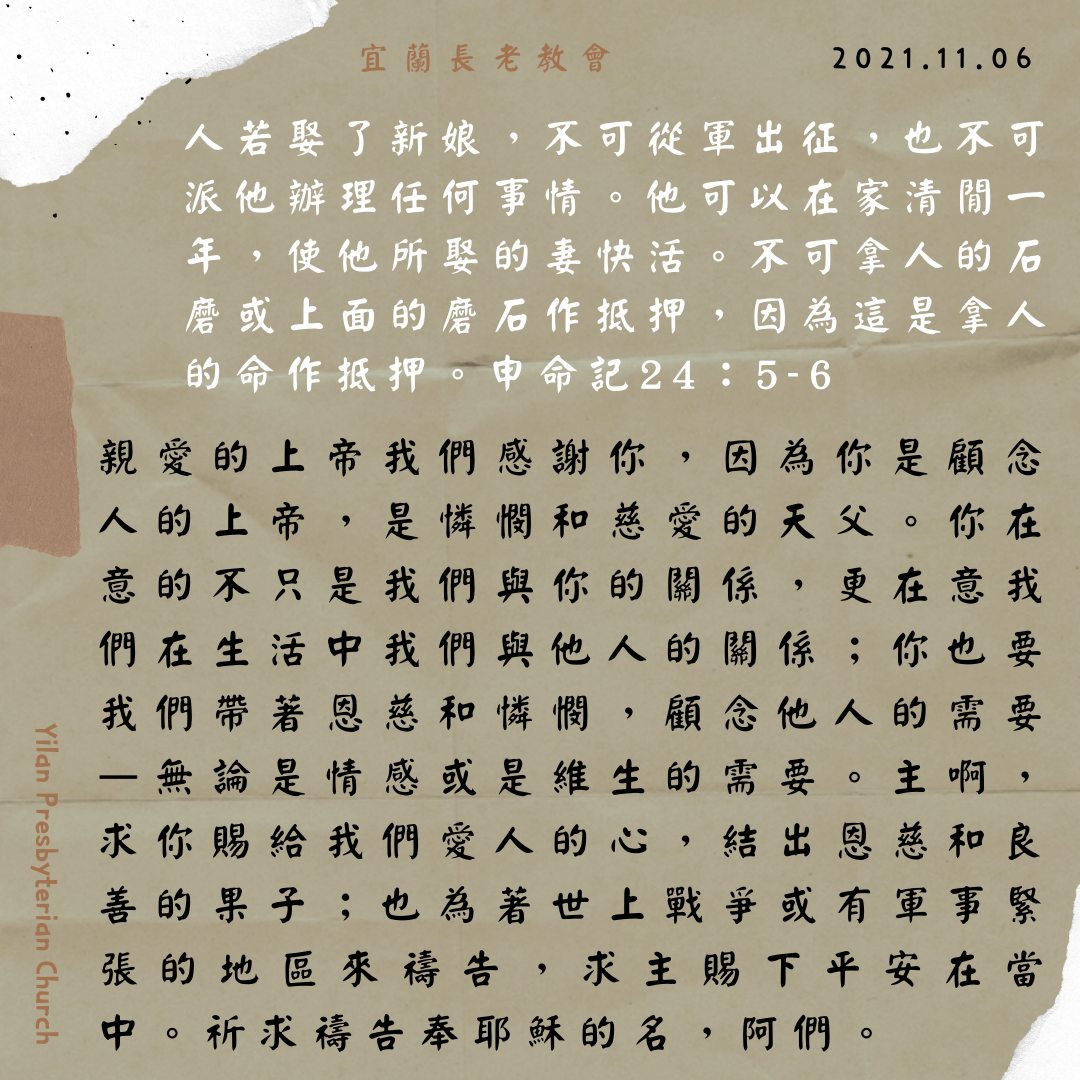 宜蘭長老教會
2021.11.06
人若娶了新娘，不可從軍出征，也不可
派他辦理任何事情。他可以在家清閒一
年，使他所娶的妻快活。不可拿人的石
磨或上面的磨石作抵押，因為這是拿人
的命作抵押。申命記24：5-6
親愛的上帝我們感謝你，因為你是顧念
人的上帝，是憐憫和慈愛的天父。你在
意的不只是我們與你的關係，更在意我
們在生活中我們與他人的關係；你也要
我們帶著恩慈和憐憫，顧念他人的需要
—無論是情感或是維生的需要。主啊，
求你賜給我們愛人的心，結出恩慈和良
善的果子；也為著世上戰爭或有軍事緊
張的地區來禱告，求主賜下平安在當
中。祈求禱告奉耶穌的名，阿們。
Yilan Presbyterian Church